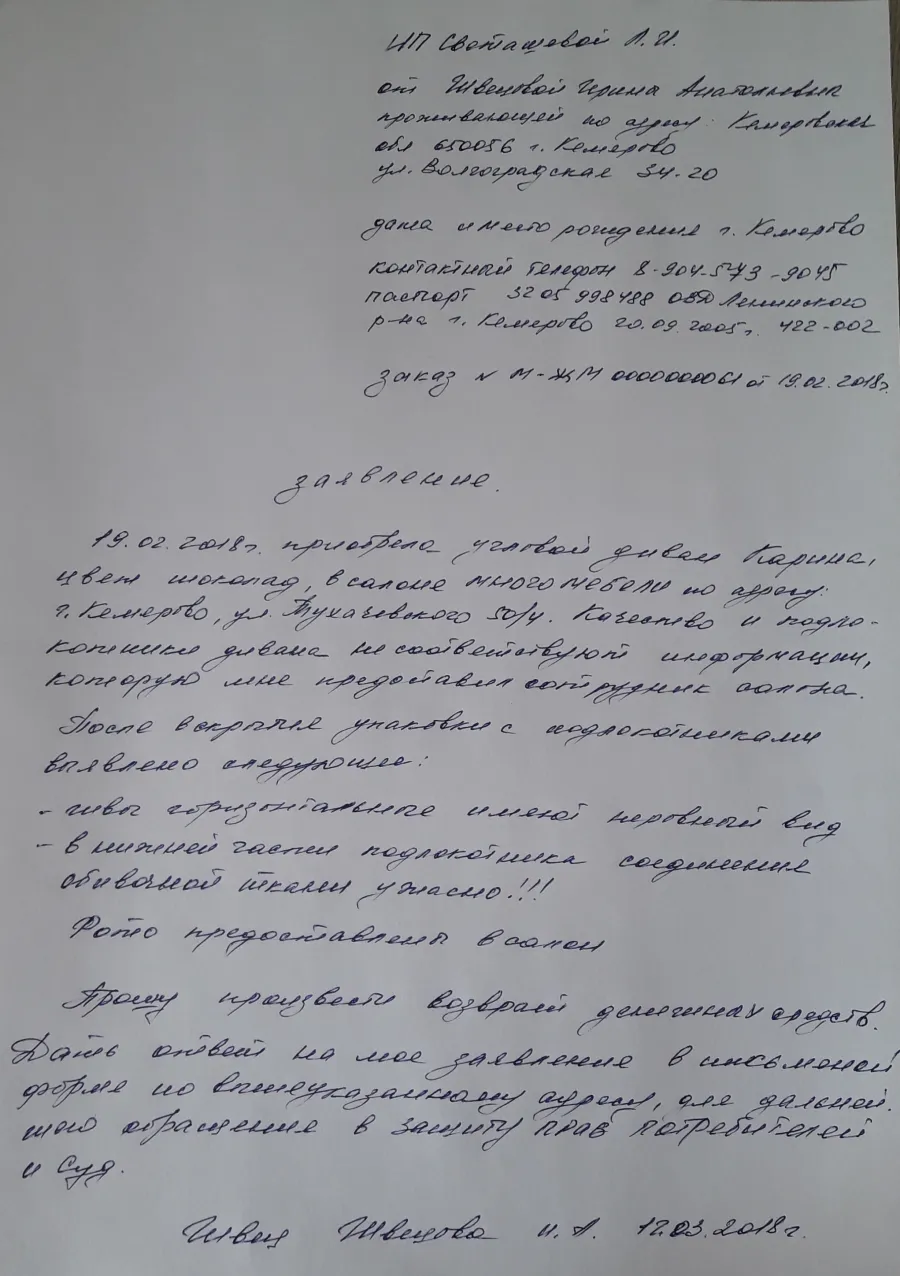 ИП Светашевой Л.И.
от Швецовой Ирина Анатольевна
проживающей по адресу: Кемеровская
обл 650056 г. Кемерово
ул. Волгоградская 34-20
дата и место рождения г. Кемерово
контактный телефон 8-904-573-9045
паспорт 3205 998488 ОВД Ленинского
р-на г. Кемерово 20.09.2005г. 422-002
заказ N М-ЖМ 0000000061 от 19.02.2018г.
заявление.
19.02.2018г. приобрела угловой диван Карина,
цвет шоколад, в салоне много мебели по адресу:
г. Кемерово, ул. Тухачевского 50/4. Качество и подло-
котники дивана не соответствуют информации,
которую мне предоставил сотрудник салона.
После вскрытия упаковки с подлокотниками
выявлено следующие:
- швы горизонтальные имеют неровный вид
- в нижней части подлокотника соединения
обивочной ткани ужасно!!!
Фото предоставлены в салон
Прошу произвести возврат денежных средств.
Дать ответ на мое заявление в письменой
форме по вышеуказанному адресу, для дальней
шего обращения в защиту прав потребителей
и суд.
Швец Швецова И.А. 12.03.2018г.